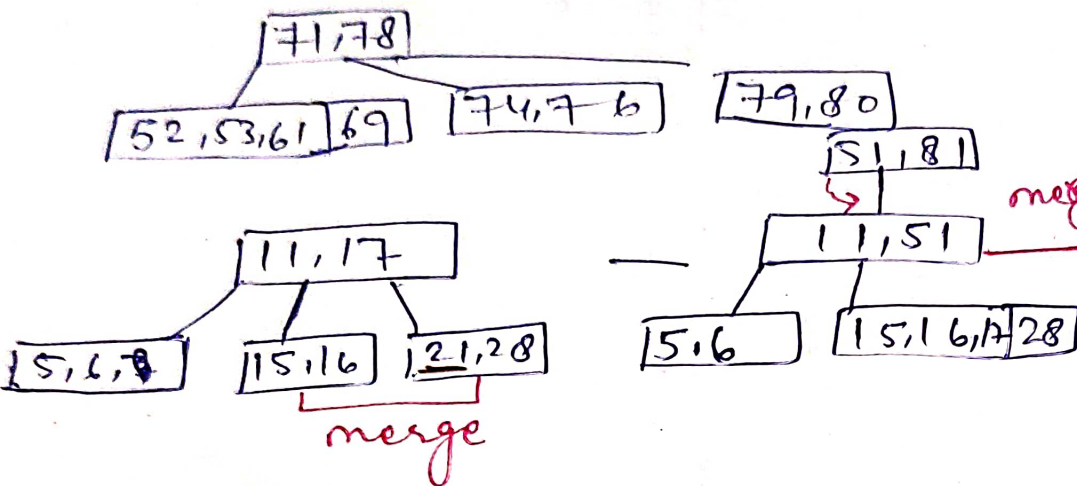 71,78
52,53,61 69
74,7 6
79,80
51,81
11,17
11,51
5,6
15,16
21,28
5,6
15,16,17 28
merge